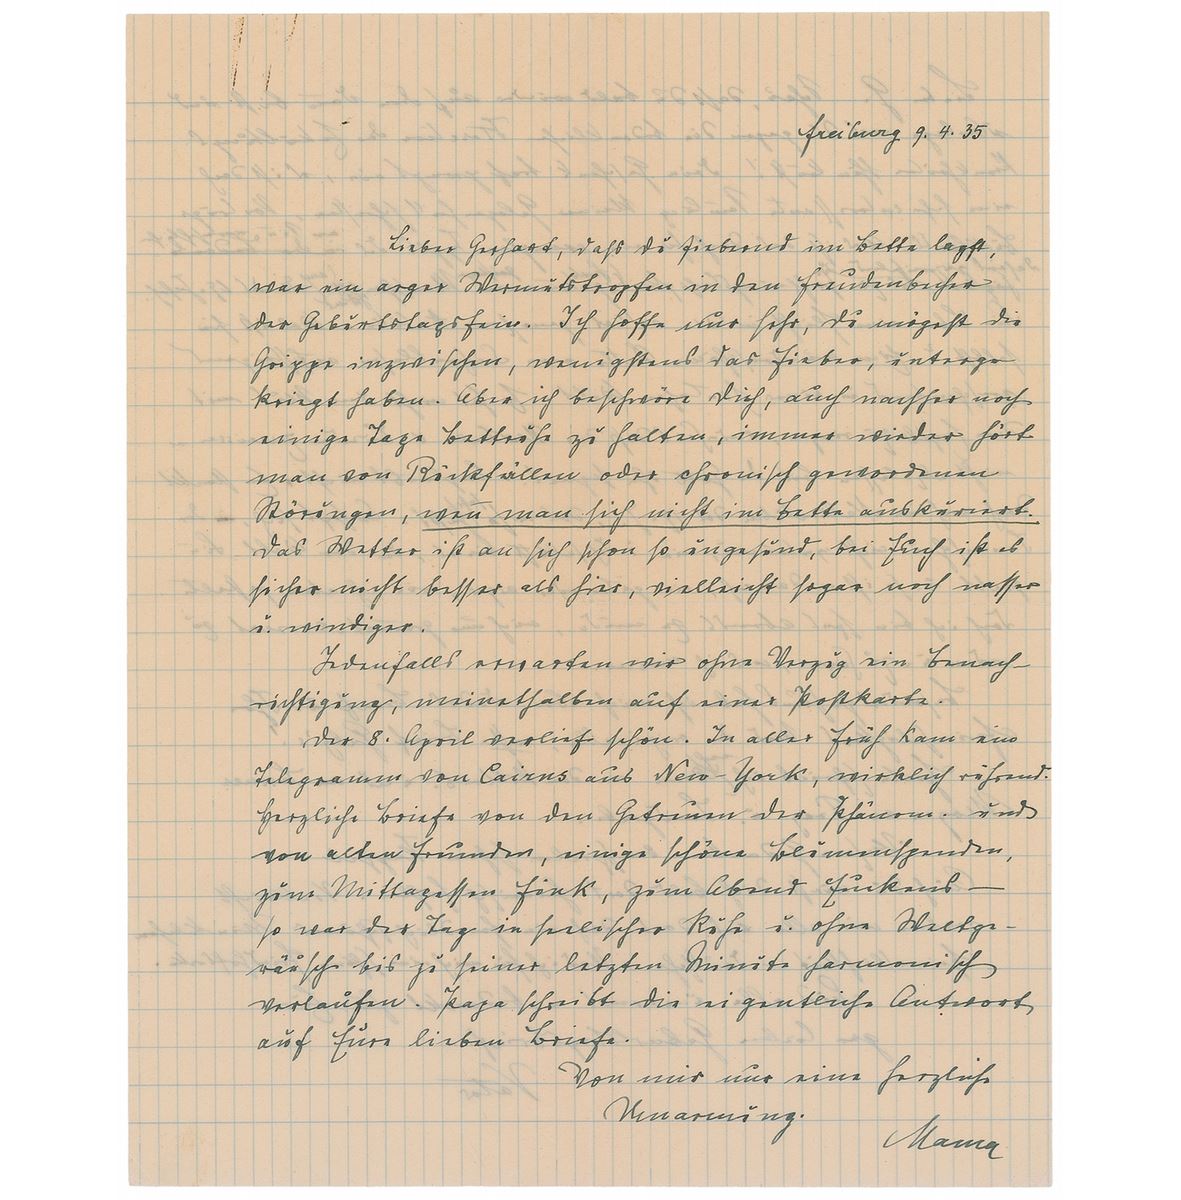 Freiburg 9. 4. 35
Lieber Gerhart, dass Du fiebernd im Bette lagst,
war ein arger Wermutstropfen in den Freudenbecher
der Geburtstagsfeier. Ich hoffe nur sehr, Du mögest die
Grippe inzwischen, wenigstens das Fieber, unterge
kriegt haben. Aber ich beschwöre Dich, auch nachher noch
einige Tage Bettruhe zu halten, immer wieder hört
man von Rückfällen oder chronisch gewordenen
Störungen, wen̅ man sich nicht im Bette auskuriert.
Das Wetter ist an sich schon so ungesund, bei Euch ist es
sicher nicht besser als hier, vielleicht sogar noch nasser
u. windiger.
Jedenfalls erwarten wir ohne Verzug ein Benach
richtigung, meinethalben auf einer Postkarte.
Der 8. April verlief schön. In aller Früh kam ein
Telegramm von Cairns aus New-York, wirklich rührend.
Herzliche Briefe von den Getreuen der Phänom. und
von alten Freunden, einige schöne Blumenspenden,
zum Mittagessen Fink, zum Abend Euckens —
so war der Tag in seelischer Ruhe u. ohne Weltge-
räusch bis zu seiner letzten Minute harmonisch
verlaufen. Papa schreibt die eigentliche Antwort
auf Eure lieben Briefe.
Von mir nur eine herzliche
Umarmung.
Mama